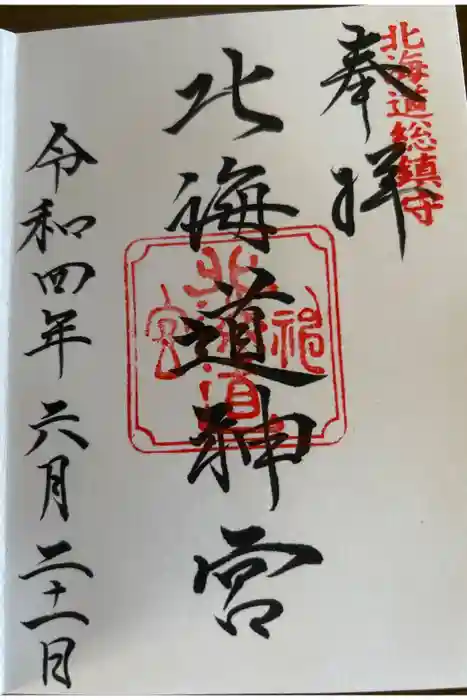 北海道総鎮守
奉拝
北海道神宮
北海道神宮
令和四年六月二十一日